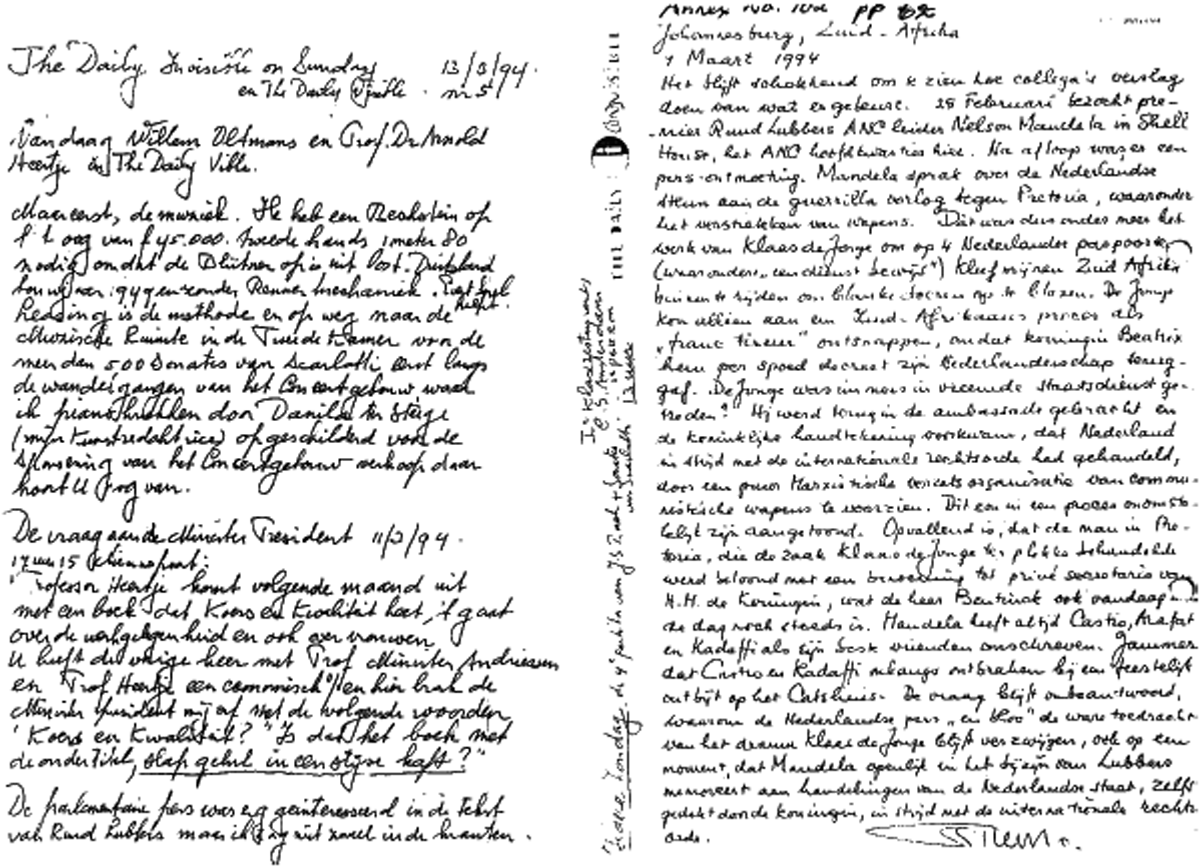 The Daily Invisible on Sunday 13/3/94.
en The Daily Visible. nr 5
Vandaag Willem Oltmans en Prof. Dr. Arnold
Heertje in The Daily Visible.
Maar eerst, de muziek. Ik heb een Bechstein op
't oog van f 45.000. tweede hands 1 meter 80
nodig omdat de Blütner op is uit Oost. Duitsland
bouwjaar 1949 en zonder Renner mechaniek.
heading is de methode en op weg naar de
Muzische Ruimte in de Tweede Kamer voor de
meer dan 500 Sonates van Scarlatti eerst langs
de wandelgangen van het Concertgebouw waar
ik pianokrukken door Danila ter Stege
(mijn Kunstredaktrice) opgeschilderd voor de
van het Concertgebouw verkoop daar
hoort U nog van.
De vraag aan de Minister President 11/3/94.
17 uur 15
"Professor Heertje komt volgende maand uit
met een boek dat Koers en Kwaliteit heet, it gaat
over de werkgelegenheid en ook over vrouwen
U heeft de vorige keer met Prof Minister Andriessen
en Prof Heertje een en hier brak de
Minister President mij af met de volgende woorden
"Koers en Kwaliteit?" "Is dat het boek met
de ondertitel, slap gelul in een stijve kaft?"
De parlementaire pers was erg geinteresseerd in de tekst
van Ruud Lubbers maar ik zag niet zoveel in de kranten.
THE DAILY INVISIBLE
Iedere Zondag
13 uur
Annex No. 102 pp 62
Johannesburg, Zuid-Afrika
1 Maart 1994
Het blijft schokkend om te zien hoe collega's verslag
doen van wat er gebeurt. 25 Februari bezocht pre-
mier Ruud Lubbers ANC leider Nelson Mandela in Shell
House, het ANC hoofdkwartier hier. Na afloop was er een
pers-ontmoeting. Mandela sprak over de Nederlandse
steun aan de guerrilla oorlog tegen Pretoria, waaronder
het verstrekken van wapens. Dat was dus onder meer het
werk van Klaas de Jonge om op 4 Nederlandse paspoorten
(waaronder "een dienst bewijs") kleefmijnen Zuid Afrika
binnen te rijden om blanke boeren op te blazen. De Jonge
kon alleen aan een Zuid-Afrikaans proces als
"franc tireur" ontsnappen, omdat koningin Beatrix
hem per spoed decreet zijn Nederlanderschap terug-
gaf. De Jonge was immers in vreemde staatsdienst ge-
treden? Hij werd terug in de ambassade gebracht en
de koninklijke handtekening voorkwam, dat Nederland
in strijd met de internationale rechtsorde had gehandeld,
door een puur Marxistische verzetsorganisatie van commu-
nistische wapens te voorzien. Dit zou in een proces onomsto-
telijk zijn aangetoond. Opvallend is, dat de man in Pre-
toria, die de zaak Klaas de Jonge ter plekke behandelde
werd beloond met een benoeming tot privé secretaris van
H.M. de Koningin, wat de heer Bentinck ook vandaag
de dag noch steeds is. Mandela heeft altijd Castro, Arafat
en Kadaffi als zijn best vrienden omschreven. Jammer
dat Castro en Kadaffi onlangs ontbraken bij een feestelijk
ontbijt op het Catshuis. De vraag blijft onbeantwoord,
waarom de Nederlandse pers "en bloc" de ware toedracht
van het drama Klaas de Jonge blijft verzwijgen, ook op een
moment, dat Mandela openlijk in het bijzijn van Lubbers
memoreert aan handelingen van de Nederlandse staat, zelfs
gedekt door de koningin, in strijd met de internationale rechts-
orde.